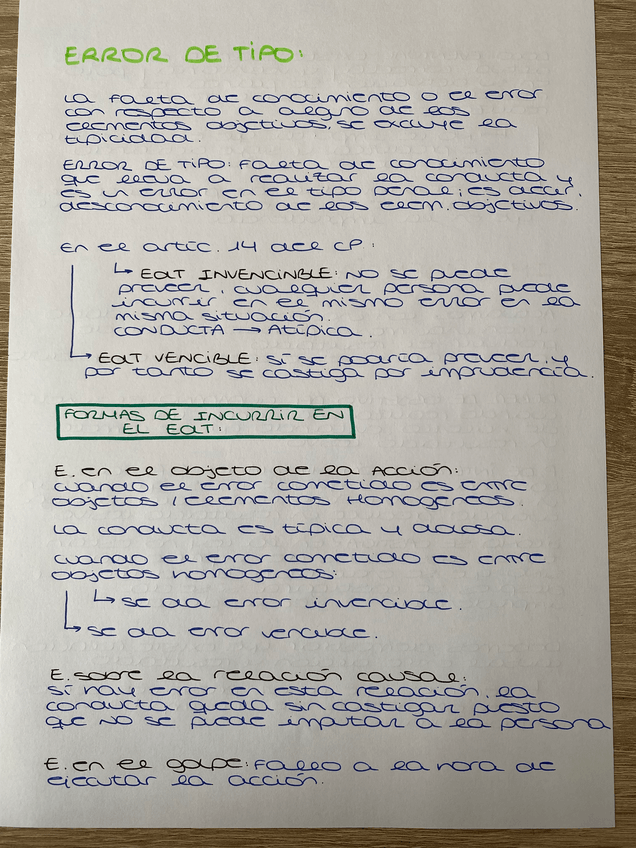 ERROR DE TIPO:
La falta de conocimiento o el error
con respecto a alguno de los
elementos objetivos, se excluye la
tipicidad.
ERROR DE TIPO: Falta de conocimiento
que lleva a realizar la conducta y
es un error en el tipo penal; es decir,
desconocimiento de los elem. objetivos.
En el artíc. 14 del CP:
↳ EdT INVENCINBLE: NO se puede
preveer, cualquier persona puede
incurrir en el mismo error en la
misma situación.
CONDUCTA → Atípica.
↳ EdT VENCIBLE: sí se podría preveer, y
por tanto se castiga por imprudencia.
FORMAS DE INCURRIR EN
EL EdT:
E. en el objeto de la Acción:
cuando el error cometido es entre
objetos / elementos Homogéneos.
La conducta es típica y dolosa.
cuando el error cometido es entre
objetos homogéneos:
↳ se da error invencible.
↳ se da error vencible.
E. sobre la relación causal:
si hay error en esta relación, la
conducta queda sin castigar puesto
que NO se puede imputar a la persona
E. en el golpe: Fallo a la hora de
ejecutar la acción.